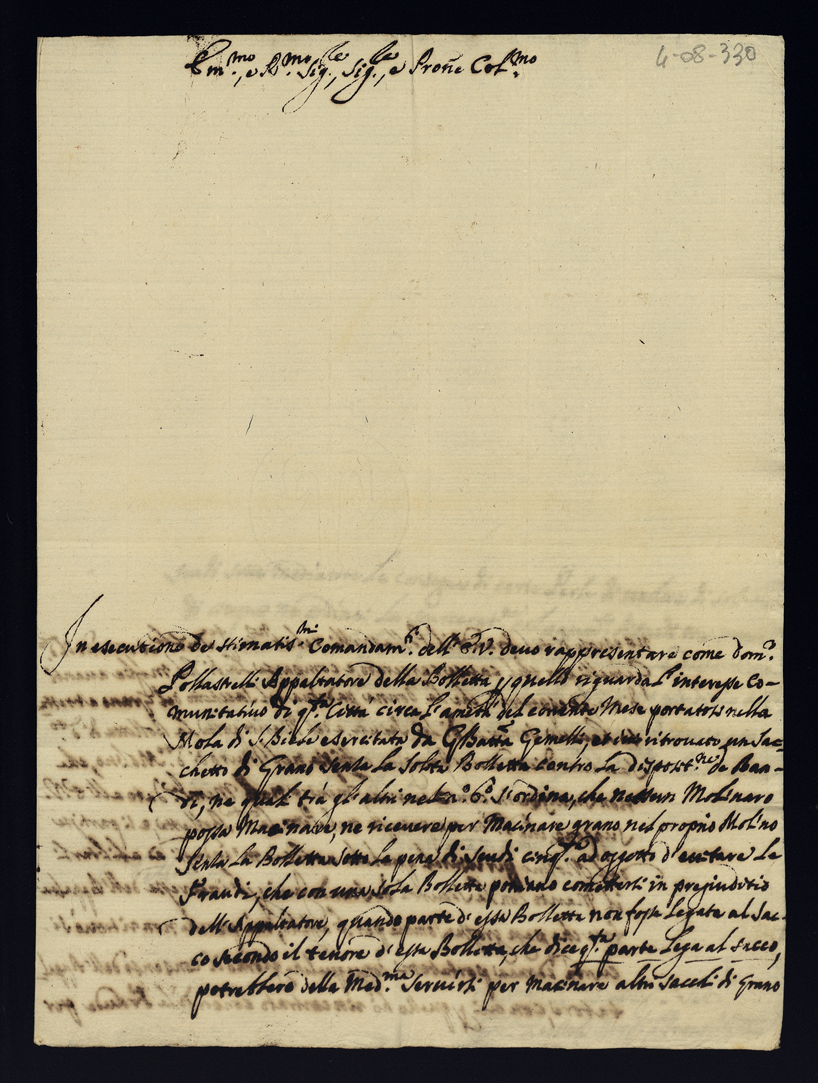 4-08-330
Em.mo, e R.mo Sig.re, Sig.re, e Prone Col.mo
In esecutione de stimatis.mi Comandam.ti dell'E.V. devo rappresentare come Dom.co
Pollastrelli Appaltatore della Bolletta p quello riguarda l'interesse Co-
munitativo di q.ta Città circa l'a metà del corrente Mese portatosi nella
Mola di S. Biele esercitata da G. Batta Gemelli, et ivi ritrovato un Sac-
chetto di Grano senza la solita Bolletta contro la disposit.ne de Ban-
di, ne quali trà gl'altri nel n.o 6.o si ordina, che nessun Molinaro
possa Macinare, ne ricevere per Macinare grano nel proprio Molino
senza la Bolletta sotto la pena di Scudi cinq.ta ad oggetto d'evitare le
Fraudi, che con una sola Bolletta potriano commettersi in prejuditio
dell'Appaltatore, quando parte d'essa Bolletta non fosse legata al Sac-
co secondo il tenore d'essa Bolletta, che dice q.ta parte lega al sacco,
potrebbero della Med.ma servirsi per Macinare altri sacchi di Grano